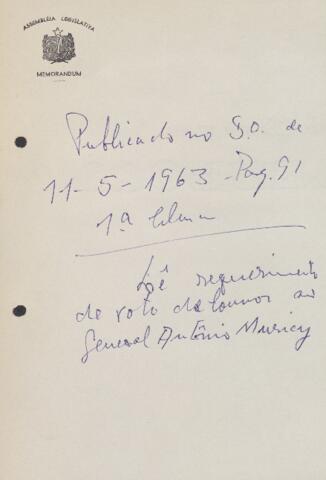 ASSEMBLÉIA LEGISLATIVA
MEMORANDUM
Publicado no D.O. de
11-5-1963 - Pag. 91
1ª coluna
Lê requerimento
de voto de louvor ao
General Antônio Muricy